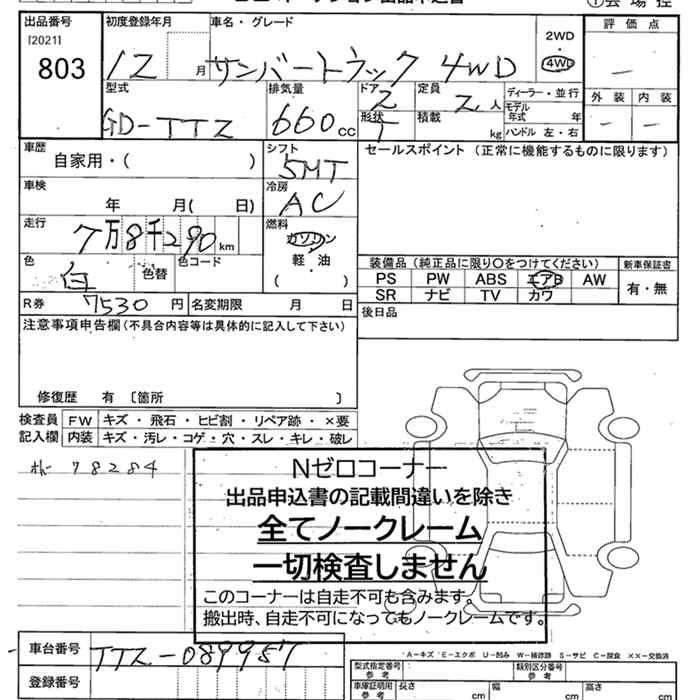 出品番号 初度登録年月 車名・グレード 評価点
[2021]
803
12 月 サンバートラック 4WD
2WD
4WD
型式 排気量 ドア 定員 ディーラー・並行 外装 内装
GD-TT2 660 cc 2 2 人 モデル年式 年
形状 T 積載 kg ハンドル 左・右
車歴 シフト セールスポイント (正常に機能するものに限ります)
自家用・( ) 5MT
車検 冷房
年 月( 日) AC
走行 燃料
7万8千290 km ガソリン
軽・油
( )
色 色替 色コード
白
装備品 (純正品に限り○をつけてください) 新車保証書
PS PW ABS エアB AW 有・無
SR ナビ TV カワ
R券 7530 円 名変期限 月 日
後日品
注意事項申告欄 (不具合内容等は具体的に記入して下さい)
修復歴 有 〔箇所 〕
検査員記入欄 FW キズ・飛石・ヒビ割・リペア跡・×要
内装 キズ・汚レ・コゲ・穴・スレ・キレ・破レ
78284
Nゼロコーナー
出品申込書の記載間違いを除き
全てノークレーム
一切検査しません
このコーナーは自走不可も含みます。
搬出時、自走不可になってもノークレームです。
A-キズ E-エクボ U-凹み W-補修跡 S-サビ C-腐食 ××-交換済
車台番号 TT2-089957
登録番号
型式指定番号 参考 類別区分番号 参考
車庫証明用 参考 長さ cm 幅 cm 高さ cm